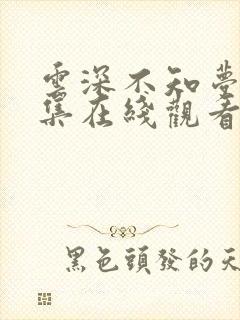 雲深不知夢
集在綫觀看
黑色頭發的天